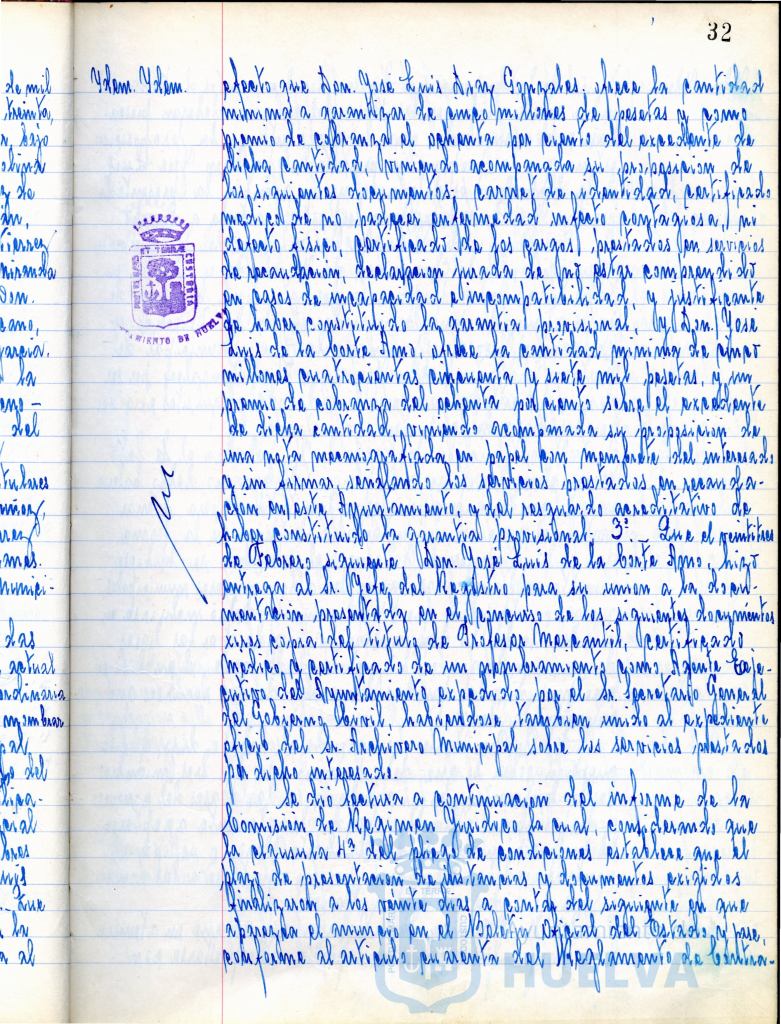 32
de mil
treinta,
bajo
de
Don.
cano,
García.
la
del
tulares
munici-
das
actual
ordinaria
nombrar
pal
del
cial
Que
la
a al
Ydem. Ydem.
efecto que Don. José Luis Díaz Gonzales. ofrece la cantidad
mínima a garantizar de cinco millones de pesetas y como
premio de cobranza el ochenta por ciento del excedente de
dicha cantidad, viniendo acompañada su proposicion de
los siguientes documentos: carnet de identidad, certificado
médico de no padecer enfermedad infecto contagiosa, ni
defecto fisico, certificado de los cargos prestados en servicios
de recaudación, declaración jurada de no estar comprendido
en casos de incapacidad e incompatibilidad, y justificante
de haber constituido la garantia provisional. Y Don. José
Luis de la Corte Amo, ofrece la cantidad mínima de cinco
millones cuatrocientas cincuenta y siete mil pesetas, y un
premio de cobranza del ochenta por ciento sobre el excedente
de dicha cantidad, viniendo acompañada su proposicion de
una nota mecanografiada en papel con membrete del interesado
y sin firmar, señalando los servicios prestados en recauda-
ción en este Ayuntamiento, y del resguardo acreditativo de
haber constituido la garantia provisional. 3º.- Que el veintitres
de Febrero siguiente, Don. José Luis de la Corte Amo, hizo
entrega al Sr. Jefe del Registro para su union a la docu-
mentación presentada en el concurso de los siguientes documentos
xeros copia del titulo de Profesor Mercantil, certificado
médico y certificado de un nombramiento como Agente Eje-
cutivo del Ayuntamiento expedido por el Sr. Secretario General
del Gobierno Civil, habiendose tambien unido al expediente
oficio del Sr. Archivero Municipal sobre los servicios prestados
por dicho interesado.
Se dió lectura a continuacion del informe de la
Comisión de Regimen Juridico la cual, considerando que
la clausula 4ª del pliego de condiciones establece que el
plazo de presentación de instancias y documentos exigidos
finalizaron a los veinte dias a contar del siguiente en que
aparezca el anuncio en el Boletin Oficial del Estado, y que,
conforme al articulo cuarenta del Reglamento de Contra-
CUSTODIA
AYUNTAMIENTO DE HUELVA
HUELVA